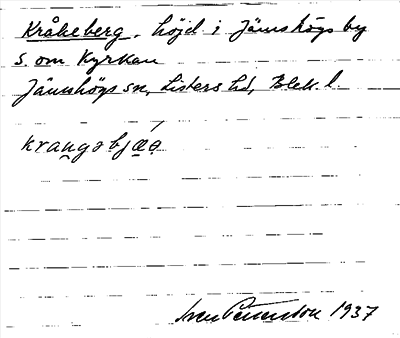 Kråkeberg. höjd i Jämshögs by
S. om Kyrkan
Jämshögs sn, Listers hd, Blek. l.
kraugəbjǽ̣ə̣
Sven Pettersson 1937